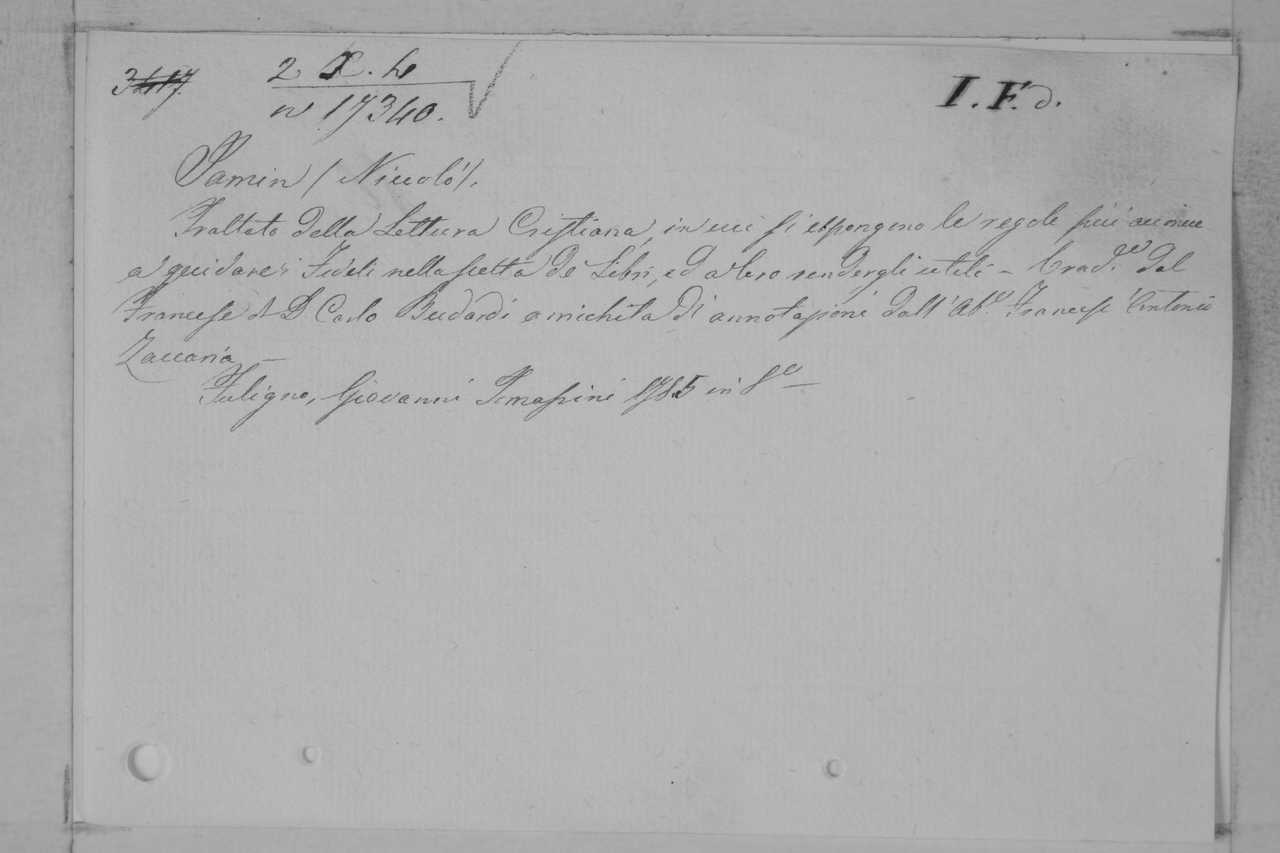 3417. 2 X. h I. F. d.
n 17340.
Jamin (Niccolò).
Trattato della Lettura Cristiana, in cui si espongono le regole più acconce
a guidare i Fedeli nella scelta de' Libri, ed a loro rendergli utili – Trad.e dal
Francese di D. Carlo Budardi arrichita di annotazioni dall' Ab.e Francesc' Antonio
Zaccaria –
Fuligno, Giovanni Tomassini 1785 in 8o –